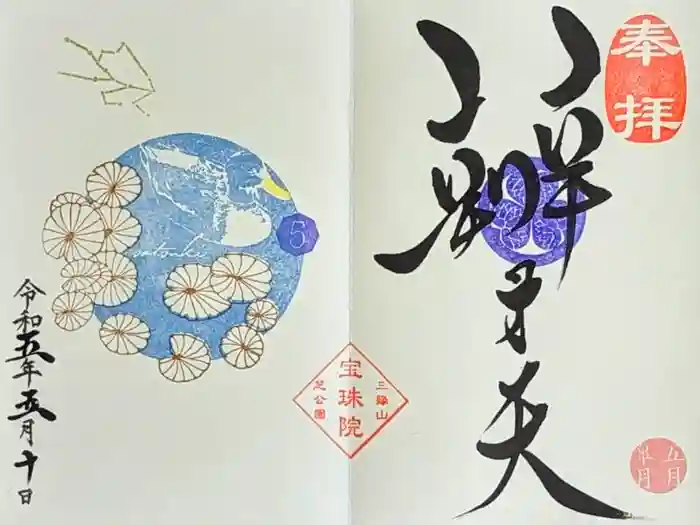 奉拝
辨才天
五月
三縁山
宝珠院
芝公園
5
satsuki
令和五年五月十日